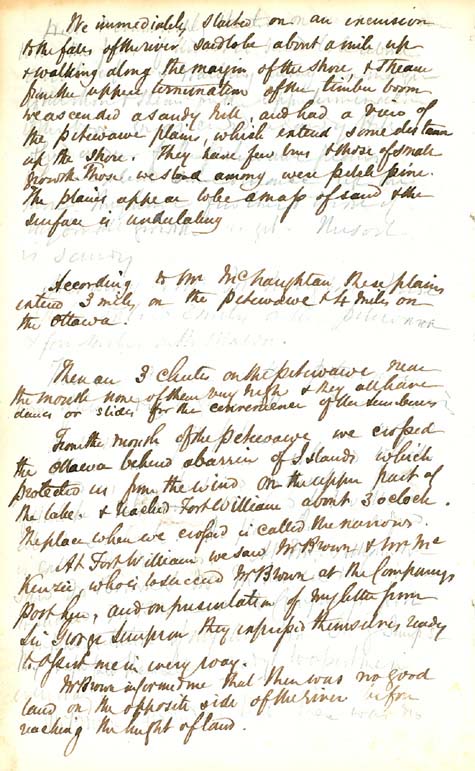 We immediately started on an excursion
to the falls of the river said to be about a mile up
& walking along the margin of the shore &
from the upper termination of the timber boom
we ascended a sandy hill, and had a view of
the Petewawe plains, which extend some distance
up the shore. They have few trees & those of small
growth Those we stood among were pitch pine.
The plains appear to be a mass of sand & the
surface is undulating
According to Mr McNaughtan these plains
extend 3 miles on the Petewawe & 4 miles on
the Ottawa.
There are 3 chutes on the Petewawe near
the mouth none of them very high & they all have
dams or slides for the convenience of the lumberers
From the mouth of the Petewawe we crossed
the Ottawa behind a barrier of Islands which
protected us from the wind on the upper part of
the lake. & reached Fort William about 3 oclock.
The place where we crossed is called the narrows
At Fort William we saw Mr Brown & Mr Mc
Kenzie, who is to succeed Mr Brown at the Companys
Post here, and on presentation of my letter from
Sir George Simpson they expressed themselves ready
to assist me in every way.
Mr Brown informed me that there was no good
land on the opposite side of the river before
reaching the height of land.